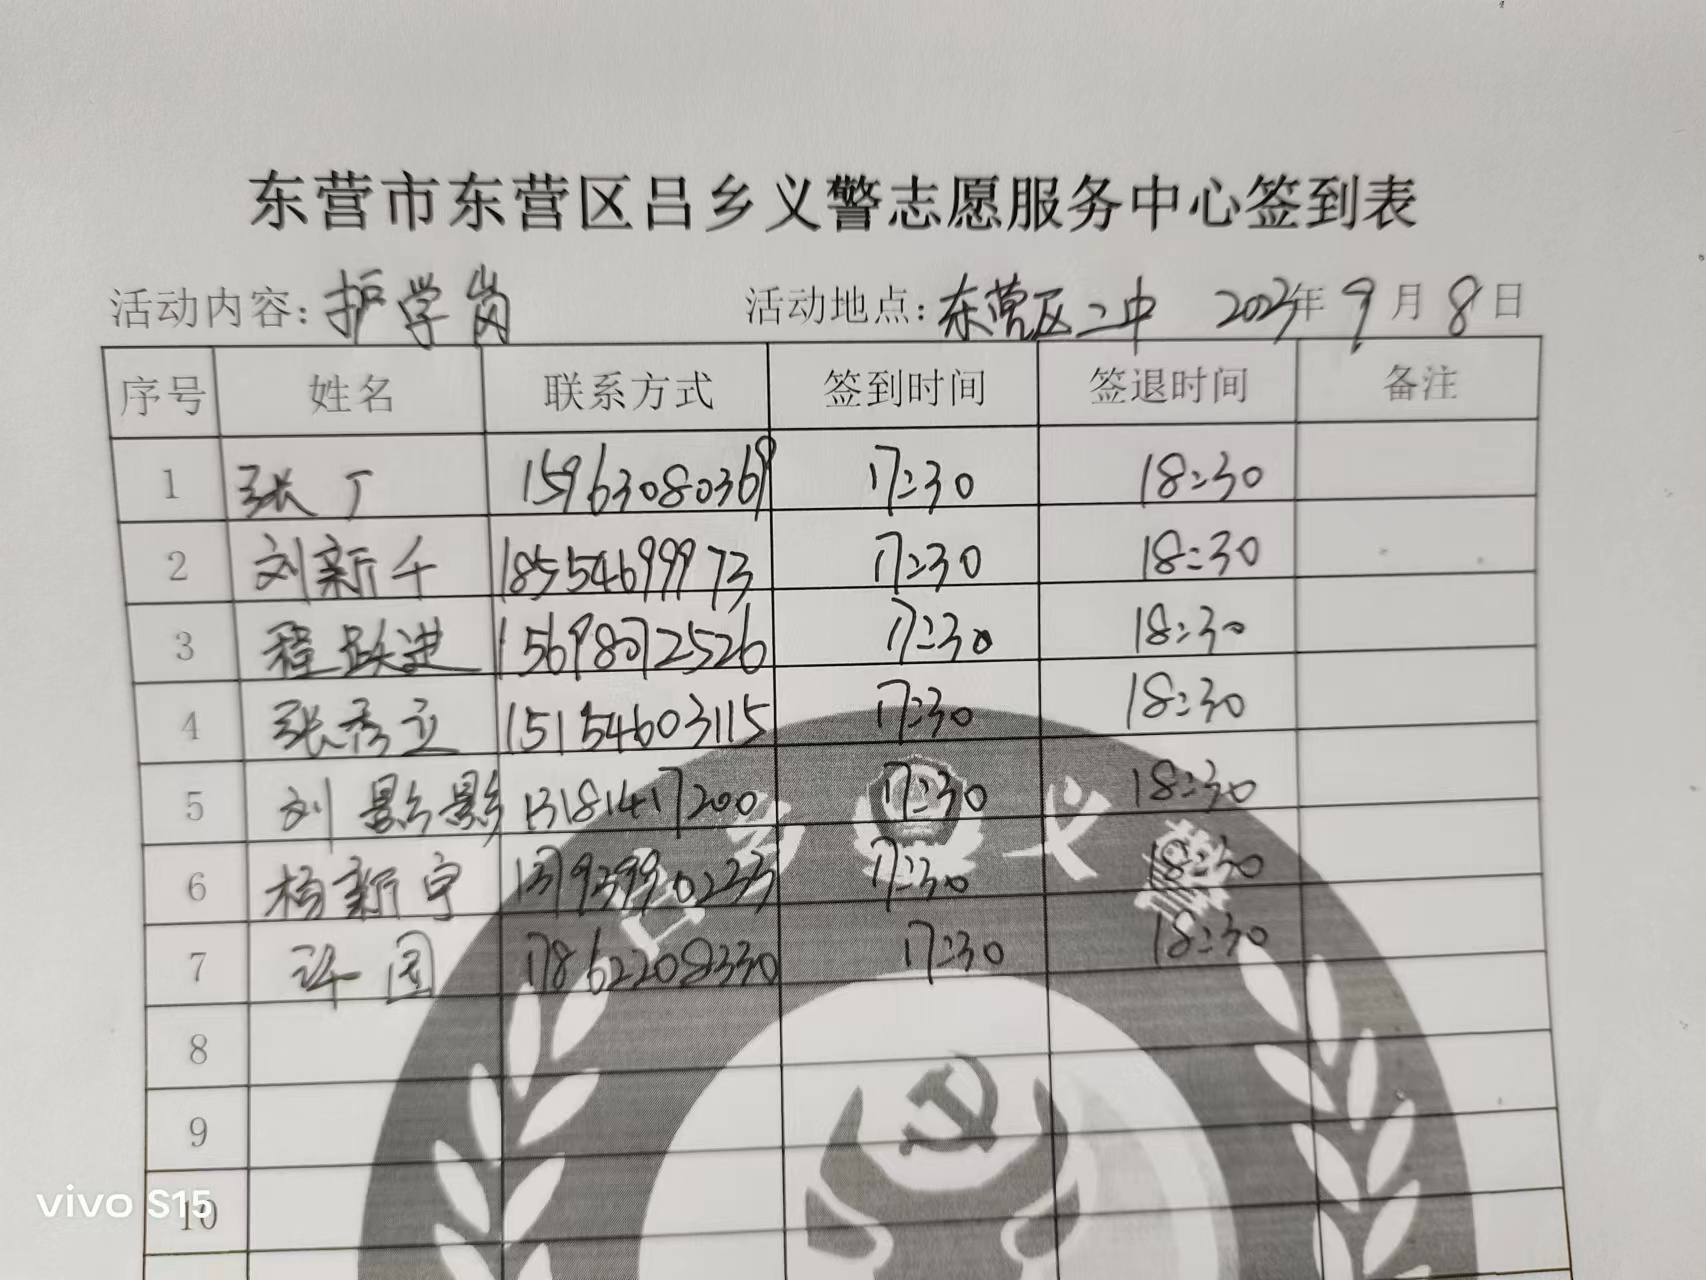 东营市东营区吕乡义警志愿服务中心签到表
活动内容：护学岗 活动地点：东营区二中 2023年9月8日
序号 姓名 联系方式 签到时间 签退时间 备注
1 张丁 15963080369 17:30 18:30
2 刘新千 18554699973 17:30 18:30
3 程跃进 15698072526 17:30 18:30
4 张秀立 15154603115 17:30 18:30
5 刘影影 13181417200 17:30 18:30
6 杨新宁 13793990233 17:30 18:30
7 许园 17862208330 17:30 18:30
8
9
10
吕乡义警
vivo S15